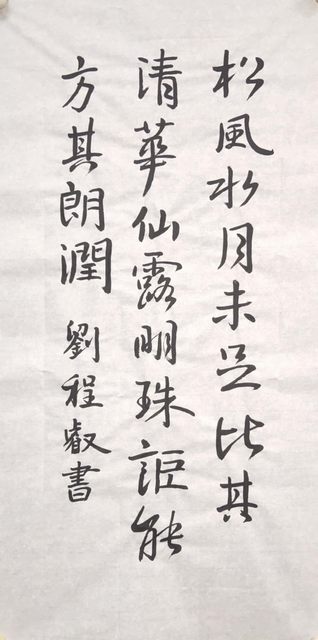 松風水月未足比其
清華仙露明珠詎能
方其朗潤 劉程叡書